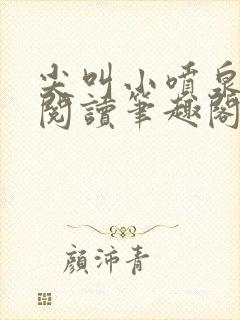 尖叫小噴泉
閱讀筆趣閣
顏沛青